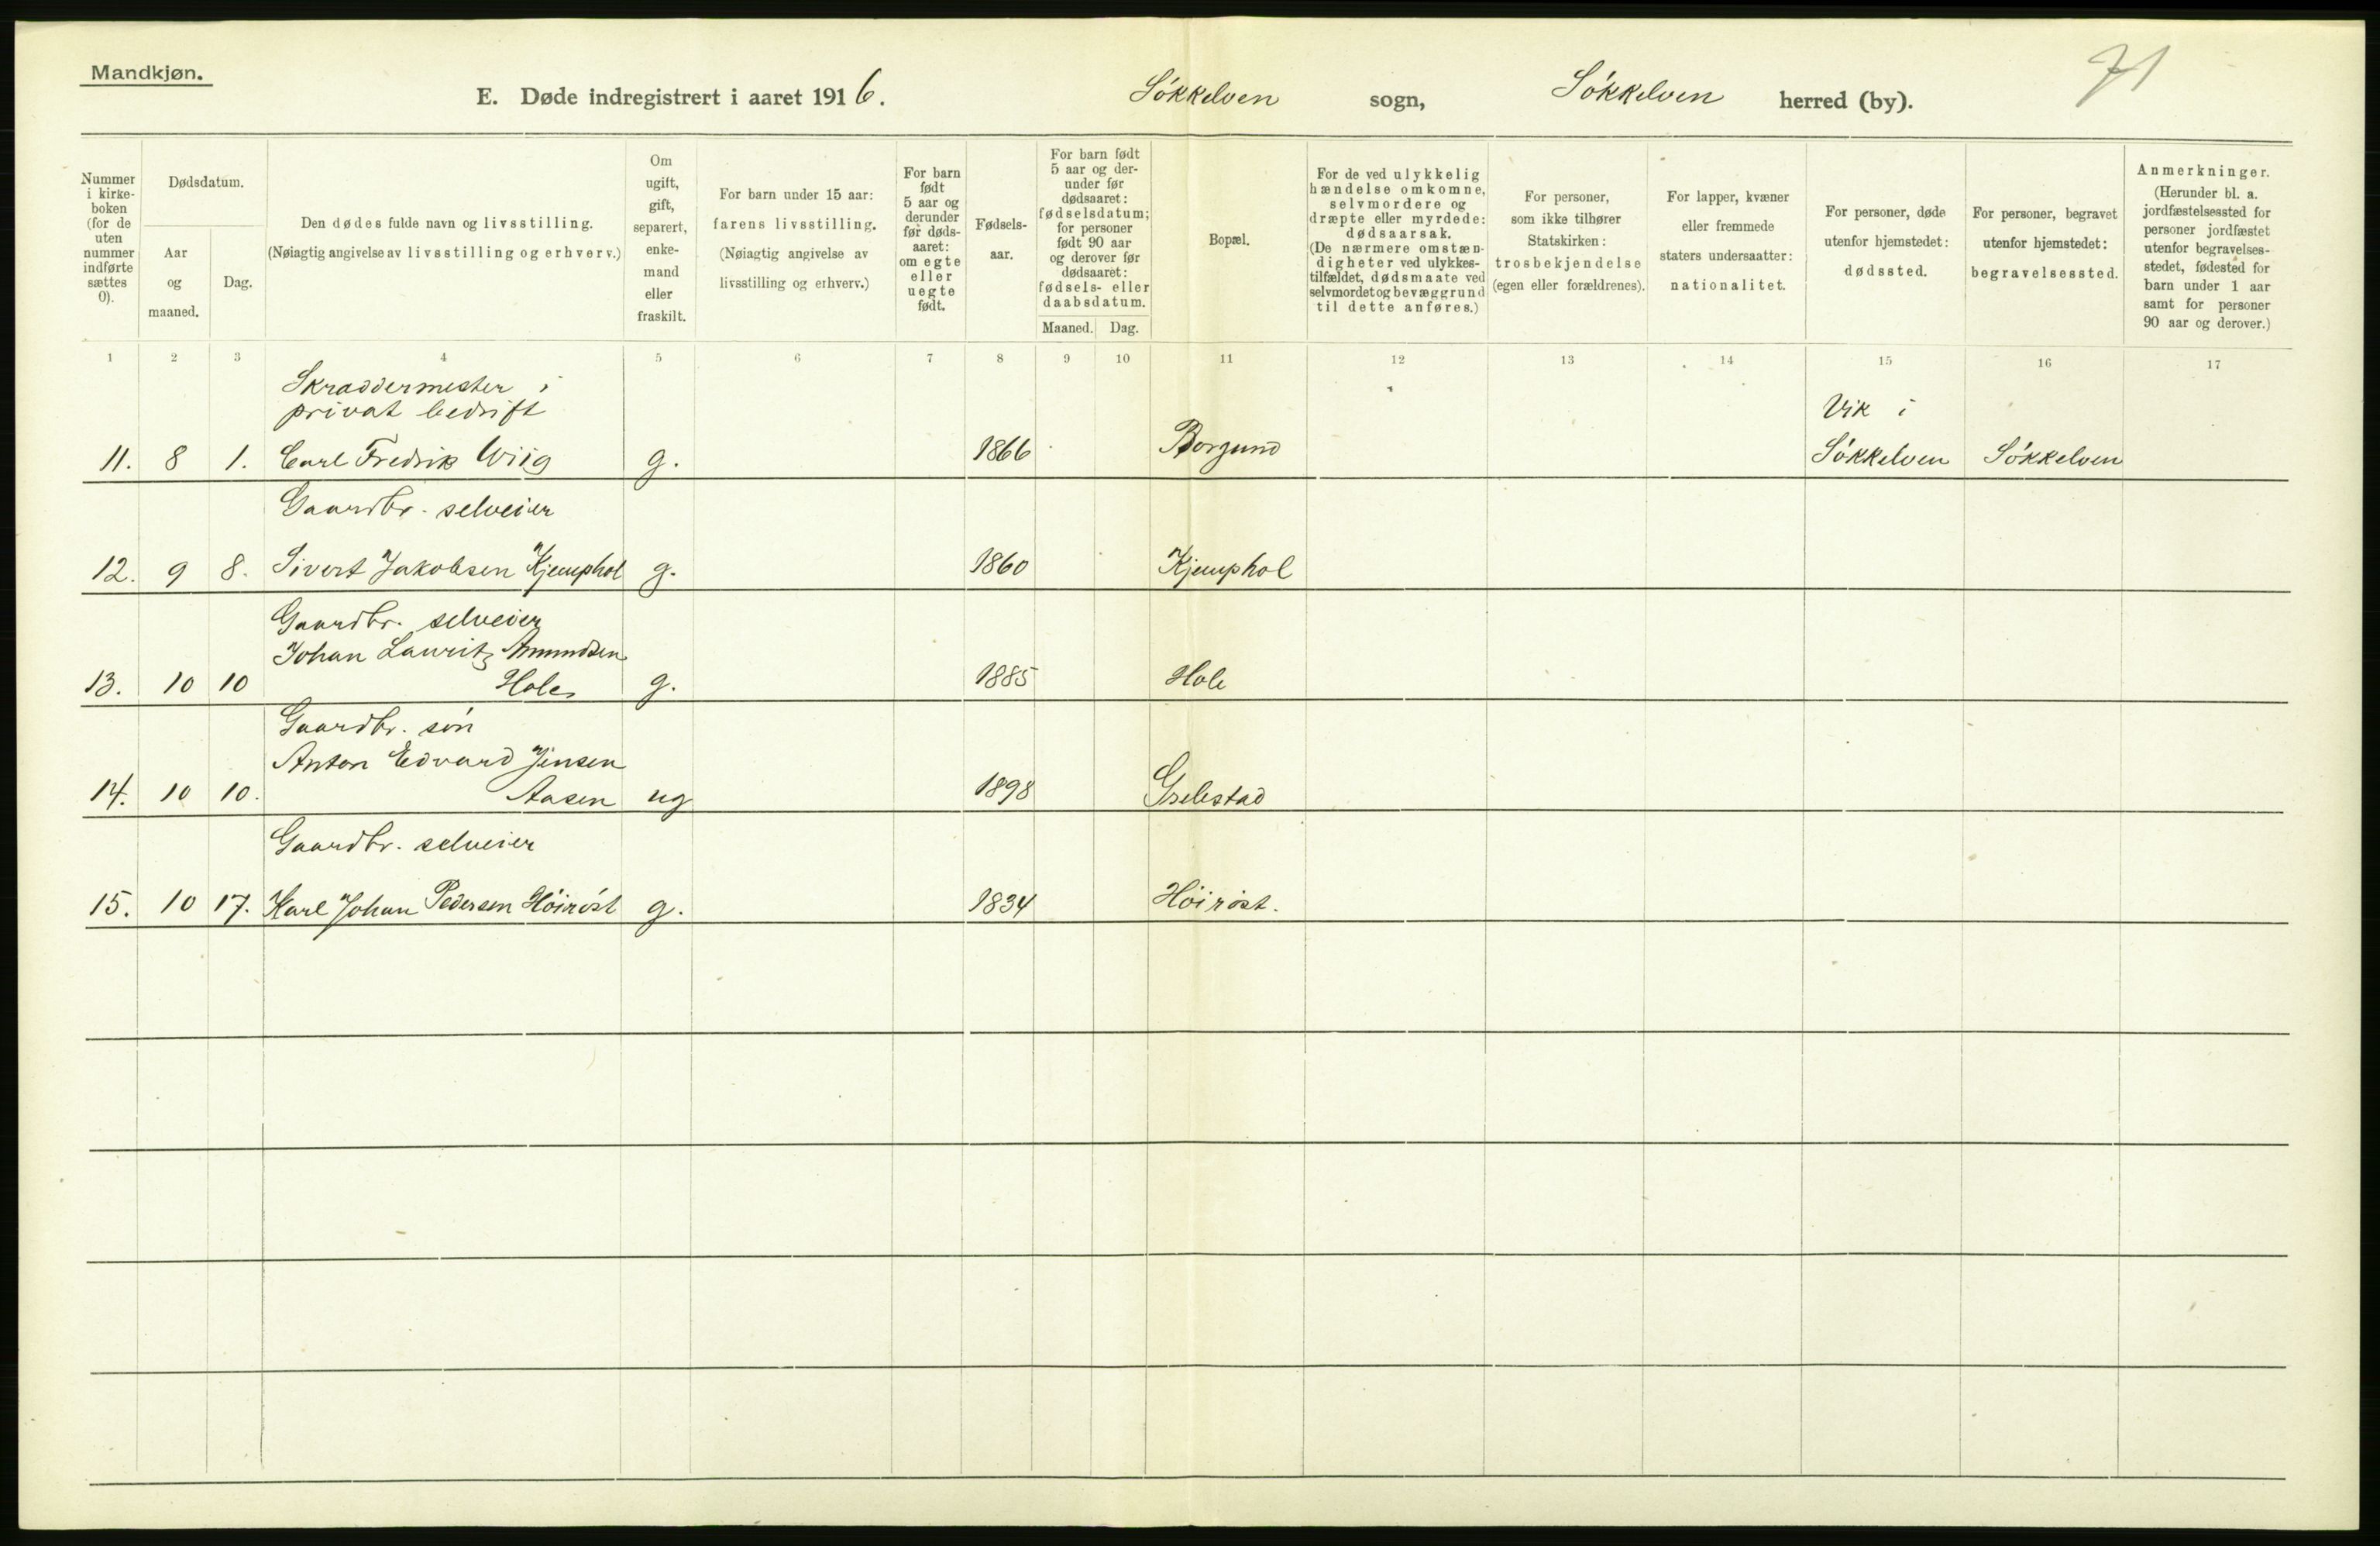 Mandkjøn.
E. Døde indregistrert i aaret 1916. Søkkelven sogn, Søkkelven herred (by).
71
Nummer
i kirke-
boken
(for de
uten
nummer
indførte
sættes
0).
Dødsdatum.
Aar
og
maaned.
Dag.
Den dødes fulde navn og livsstilling.
(Nøiagtig angivelse av livsstilling og erhverv.)
Om
ugift,
gift,
separert,
enke-
mand
eller
fraskilt.
For barn under 15 aar:
farens livsstilling.
(Nøiagtig angivelse av
livsstilling og erhverv.)
For barn
født
5 aar og
derunder
før døds-
aaret:
om egte
eller
uegte
født.
Fødsels-
aar.
For barn født
5 aar og der-
under før
dødsaaret:
fødselsdatum;
for personer
født 90 aar
og derover før
dødsaaret:
fødsels- eller
daabsdatum.
Maaned. Dag.
Bopæl.
For de ved ulykkelig
hændelse omkomne,
selvmordere og
dræpte eller myrdede:
dødsaarsak.
(De nærmere omstæn-
digheter ved ulykkes-
tilfældet, dødsmaate ved
selvmordet og bevæggrund
til dette anføres.)
For personer,
som ikke tilhører
Statskirken:
trosbekjendelse
(egen eller forældrenes).
For lapper, kvæner
eller fremmede
staters undersaatter:
nationalitet.
For personer, døde
utenfor hjemstedet:
dødssted.
For personer, begravet
utenfor hjemstedet:
begravelsessted.
Anmerkninger.
(Herunder bl. a.
jordfæstelsessted for
personer jordfæstet
utenfor begravelses-
stedet, fødested for
barn under 1 aar
samt for personer
90 aar og derover.)
1 2 3 4 5 6 7 8 9 10 11 12 13 14 15 16 17
Skraddermester i
privat bedrift Vik i
11. 8 1. Carl Fredrik Wiig g. 1866 Borgund Søkkelven Søkkelven
Gaardbr. selveier
12. 9 8. Sivert Jakobsen Kjemphol g. 1860 Kjemphol
Gaardbr. selveier
Johan Lauritz Amundsen
13. 10 10 Hole g. 1885 Hole
Gaardbr. søn
Anton Edvard Jensen
14. 10 10. Aasen ug 1898 Gjelestad
Gaardbr. selveier
15. 10 17. Karl Johan Pedersen Höiröst g. 1834 Höiröst.